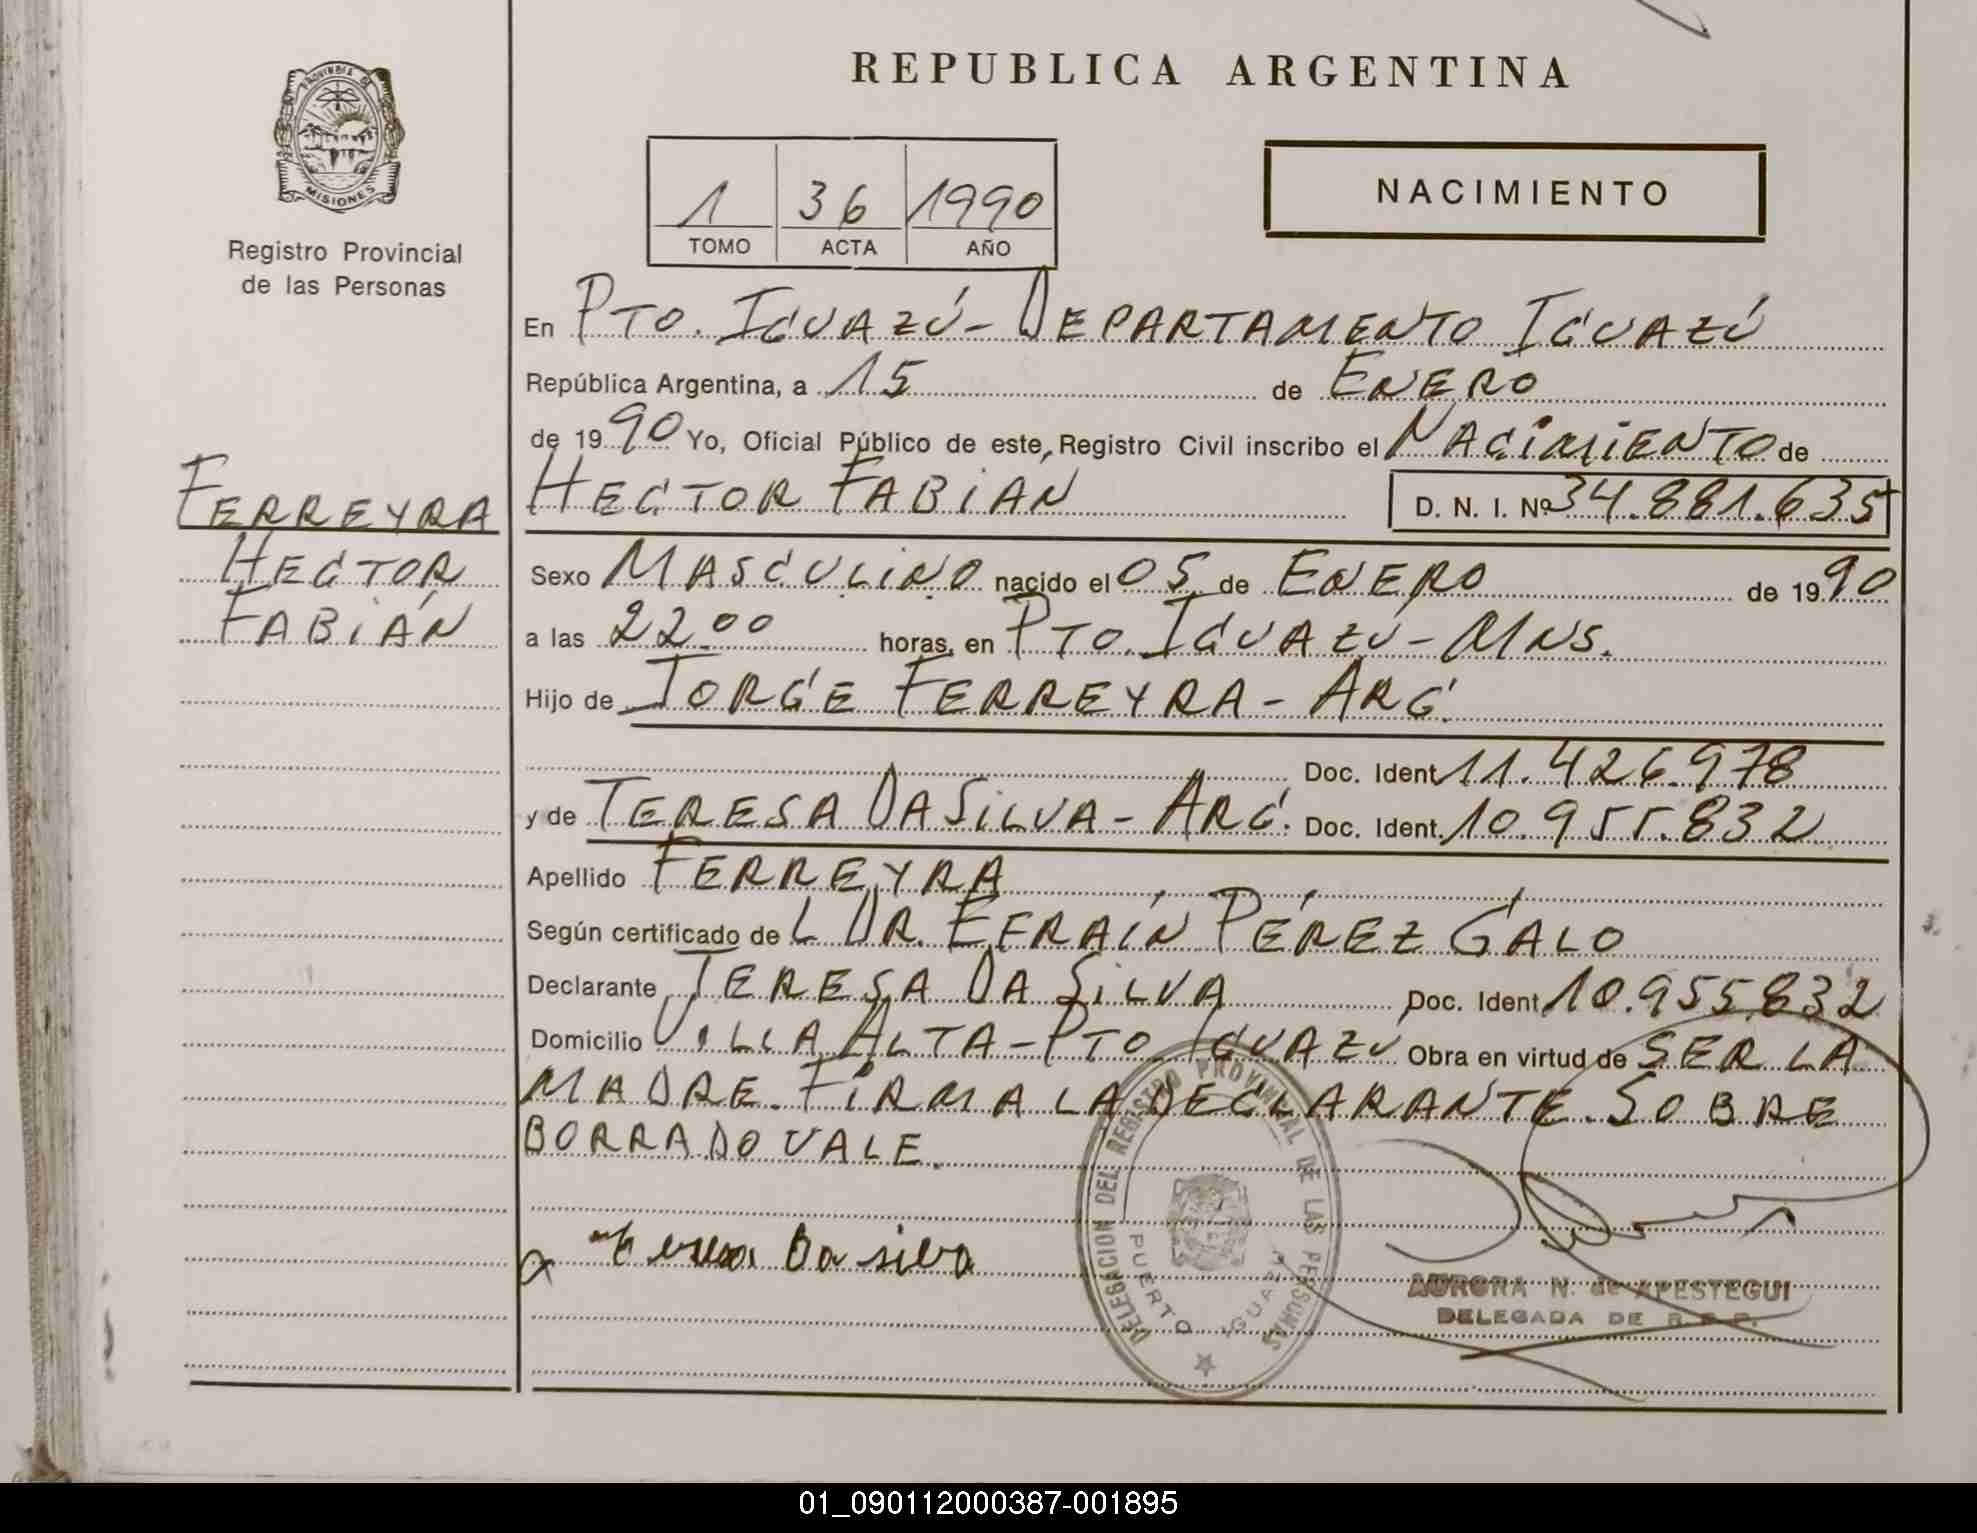 REPUBLICA ARGENTINA
PROVINCIA DE
MISIONES
Registro Provincial
de las Personas
1 36 1990
TOMO ACTA AÑO
NACIMIENTO
En PTO. IGUAZÚ - DEPARTAMENTO IGUAZÚ
República Argentina, a 15 de ENERO
de 1990 Yo, Oficial Público de este, Registro Civil inscribo el NACIMIENTO de
FERREYRA
HECTOR
FABIÁN
HECTOR FABIÁN D. N. I. Nº 34.881.635
Sexo MASCULINO nacido el 05 de ENERO de 1990
a las 22.00 horas, en PTO. IGUAZÚ - MNS.
Hijo de JORGE FERREYRA - ARG.
Doc. Ident. 11.426.978
y de TERESA DA SILVA - ARG. Doc. Ident. 10.955.832
Apellido FERREYRA
Según certificado de L DR. EFRAÍN PÉREZ GALO
Declarante TERESA DA SILVA Doc. Ident. 10.955.832
Domicilio VILLA ALTA - PTO. IGUAZÚ Obra en virtud de SER LA
MADRE. FIRMA LA DECLARANTE. SOBRE
BORRADO VALE.
Teresa Da silva
DELEGACION DEL REGISTRO PROVINCIAL DE LAS PERSONAS
PUERTO IGUAZU
AURORA N. de APESTEGUI
DELEGADA DE R.P.P.
01_090112000387-001895